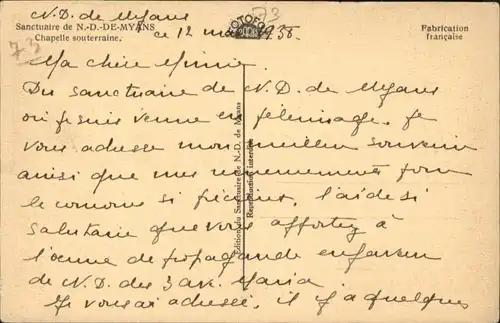 N.D. de Myans
73
Sanctuaire de N.-D.-DE-MYANS
Chapelle souterraine.
ce 12 mai 1938.
Fabrication
française
73
Ma chère Minnie.
Du sanctuaire de N.D. de Myans
où je suis venue en pèlerinage. je
vous adresse mon meilleur souvenir
ainsi que mes remerciements pour
le concours si précieux, l'aide si
salutaire que vous apportez à
l'œuvre de propagande en faveur
de N.D. des 3 ave Maria.
Je vous ai adressé, il y a quelques
Édition du Sanctuaire de N.-D. de Myans
Reproduction interdite